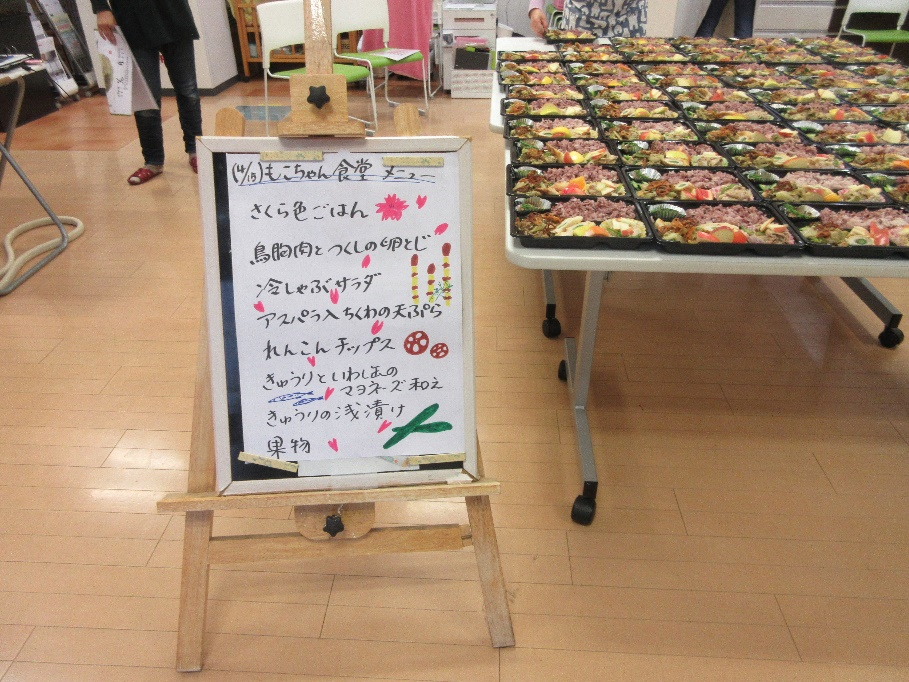 (4/15)もこちゃん食堂 メニュー
さくら色ごはん
鳥胸肉とつくしの卵とじ
冷しゃぶサラダ
アスパラ入ちくわの天ぷら
れんこんチップス
きゅうりといわし缶の
マヨネーズ和え
きゅうりの浅漬け
果物